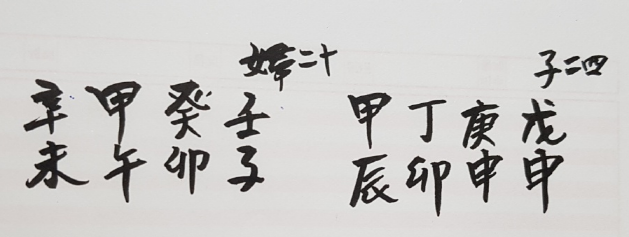 子二四
戊申
庚申
丁卯
甲辰
婦二十
壬子
癸卯
甲午
辛未